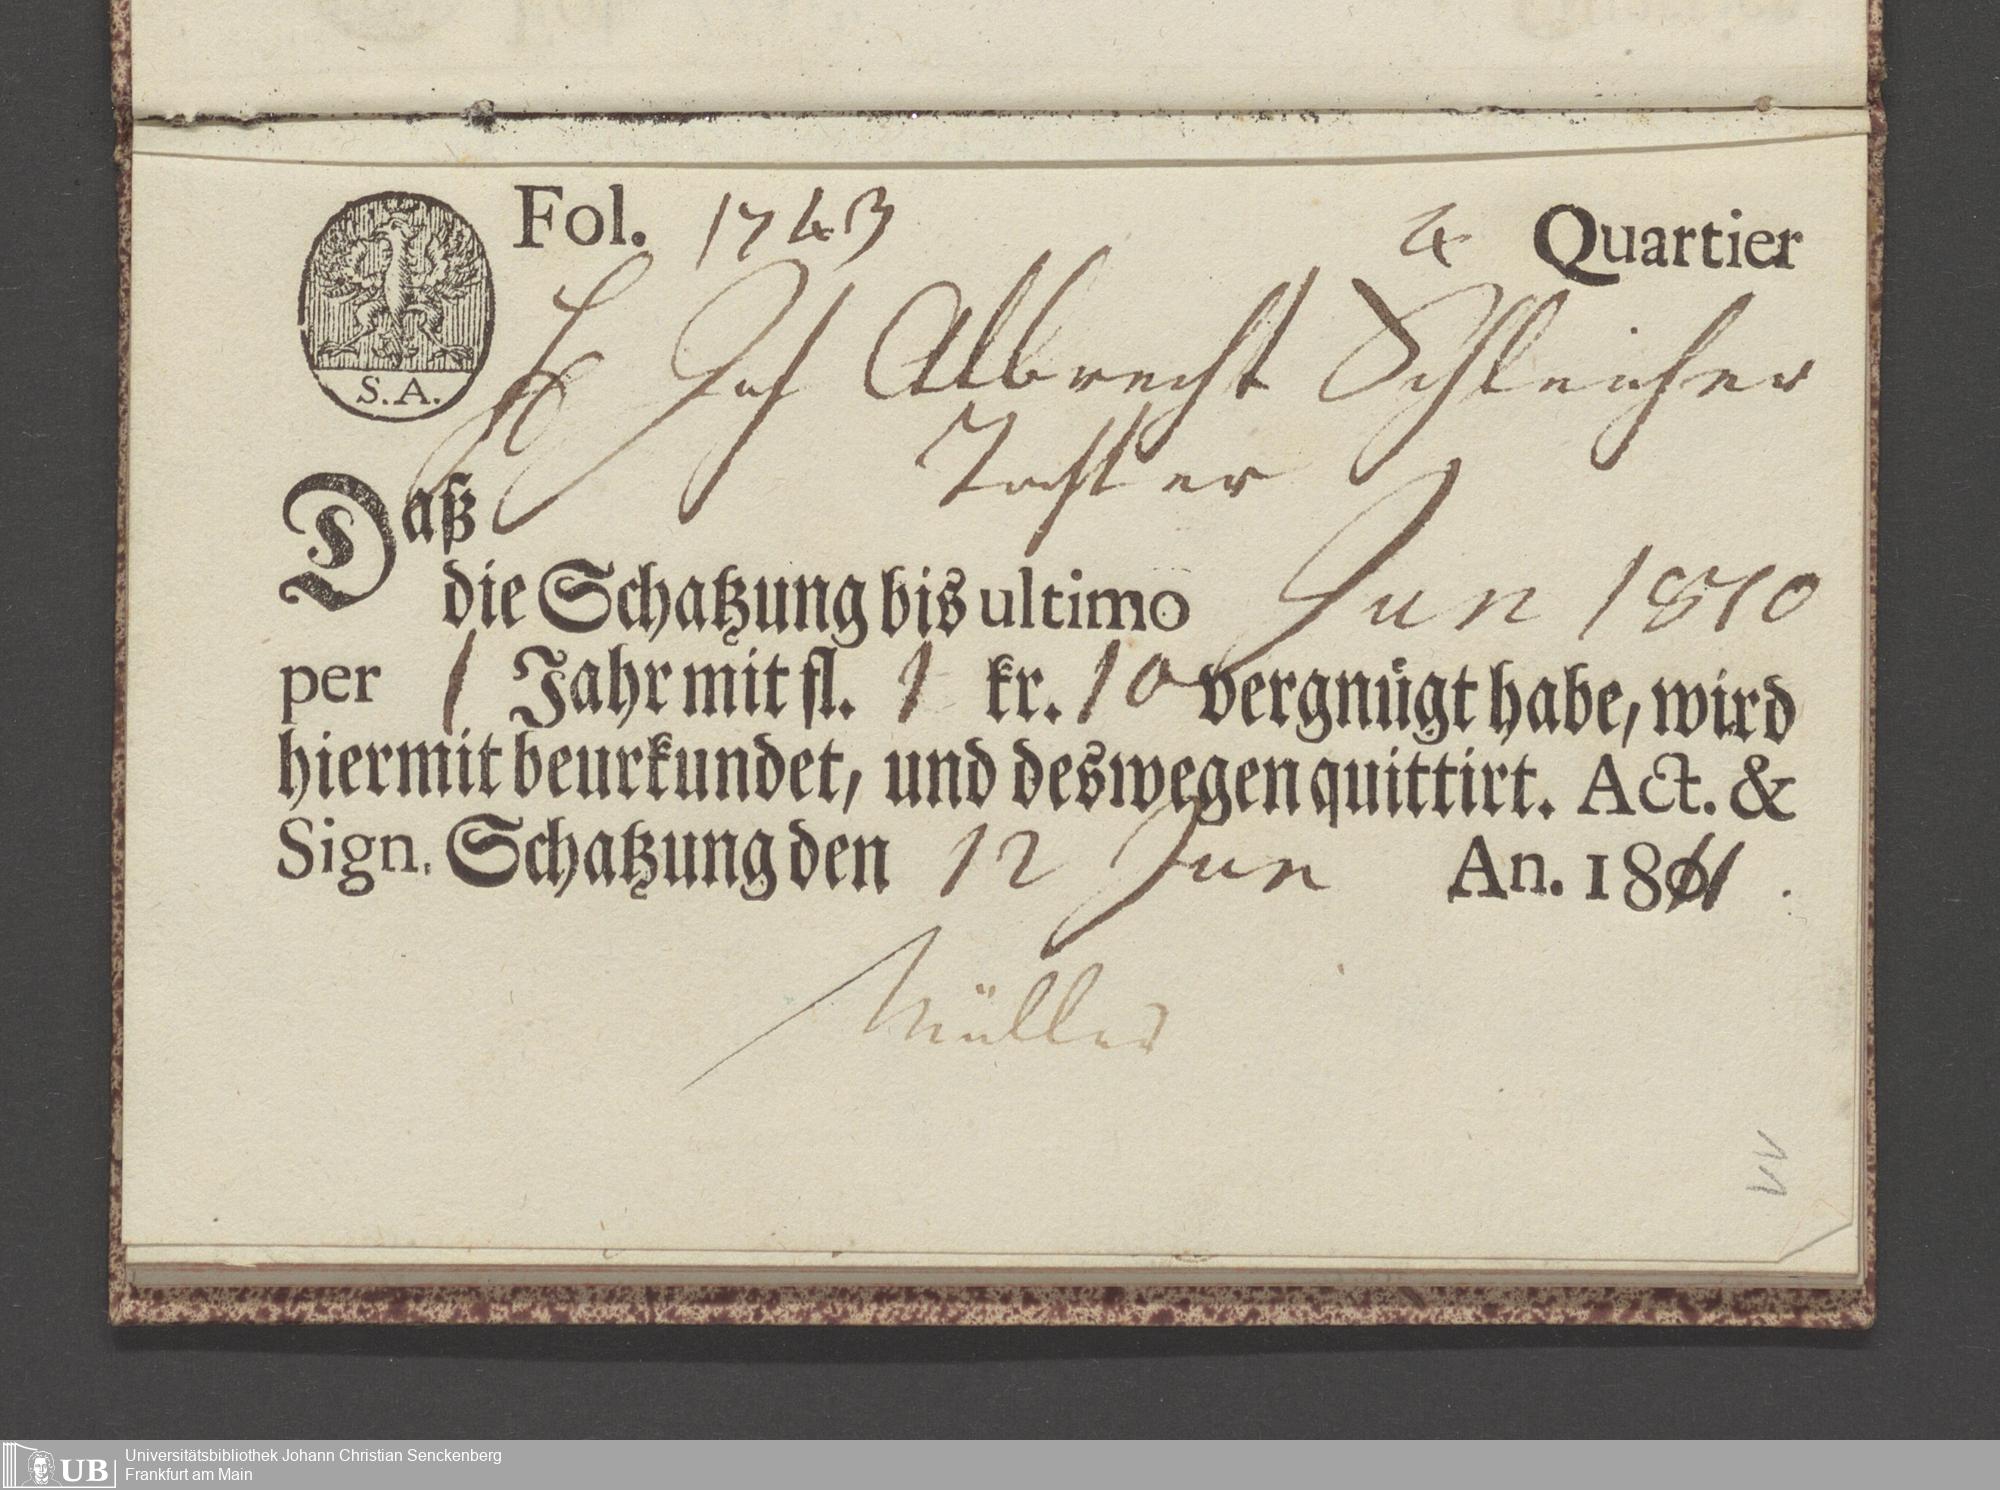 Fol. 1743 4 Quartier
S. A.
Joh Albrecht Schleicher
Tochter
Daß
die Schatzung bis ultimo Jun 1810
per 1 Jahr mit fl. 1 kr. 10 vergnügt habe, wird
hiermit beurkundet, und deswegen quittirt. Act. &
Sign. Schatzung den 12 Jun An. 1811.
Müller
UB Universitätsbibliothek Johann Christian Senckenberg
Frankfurt am Main